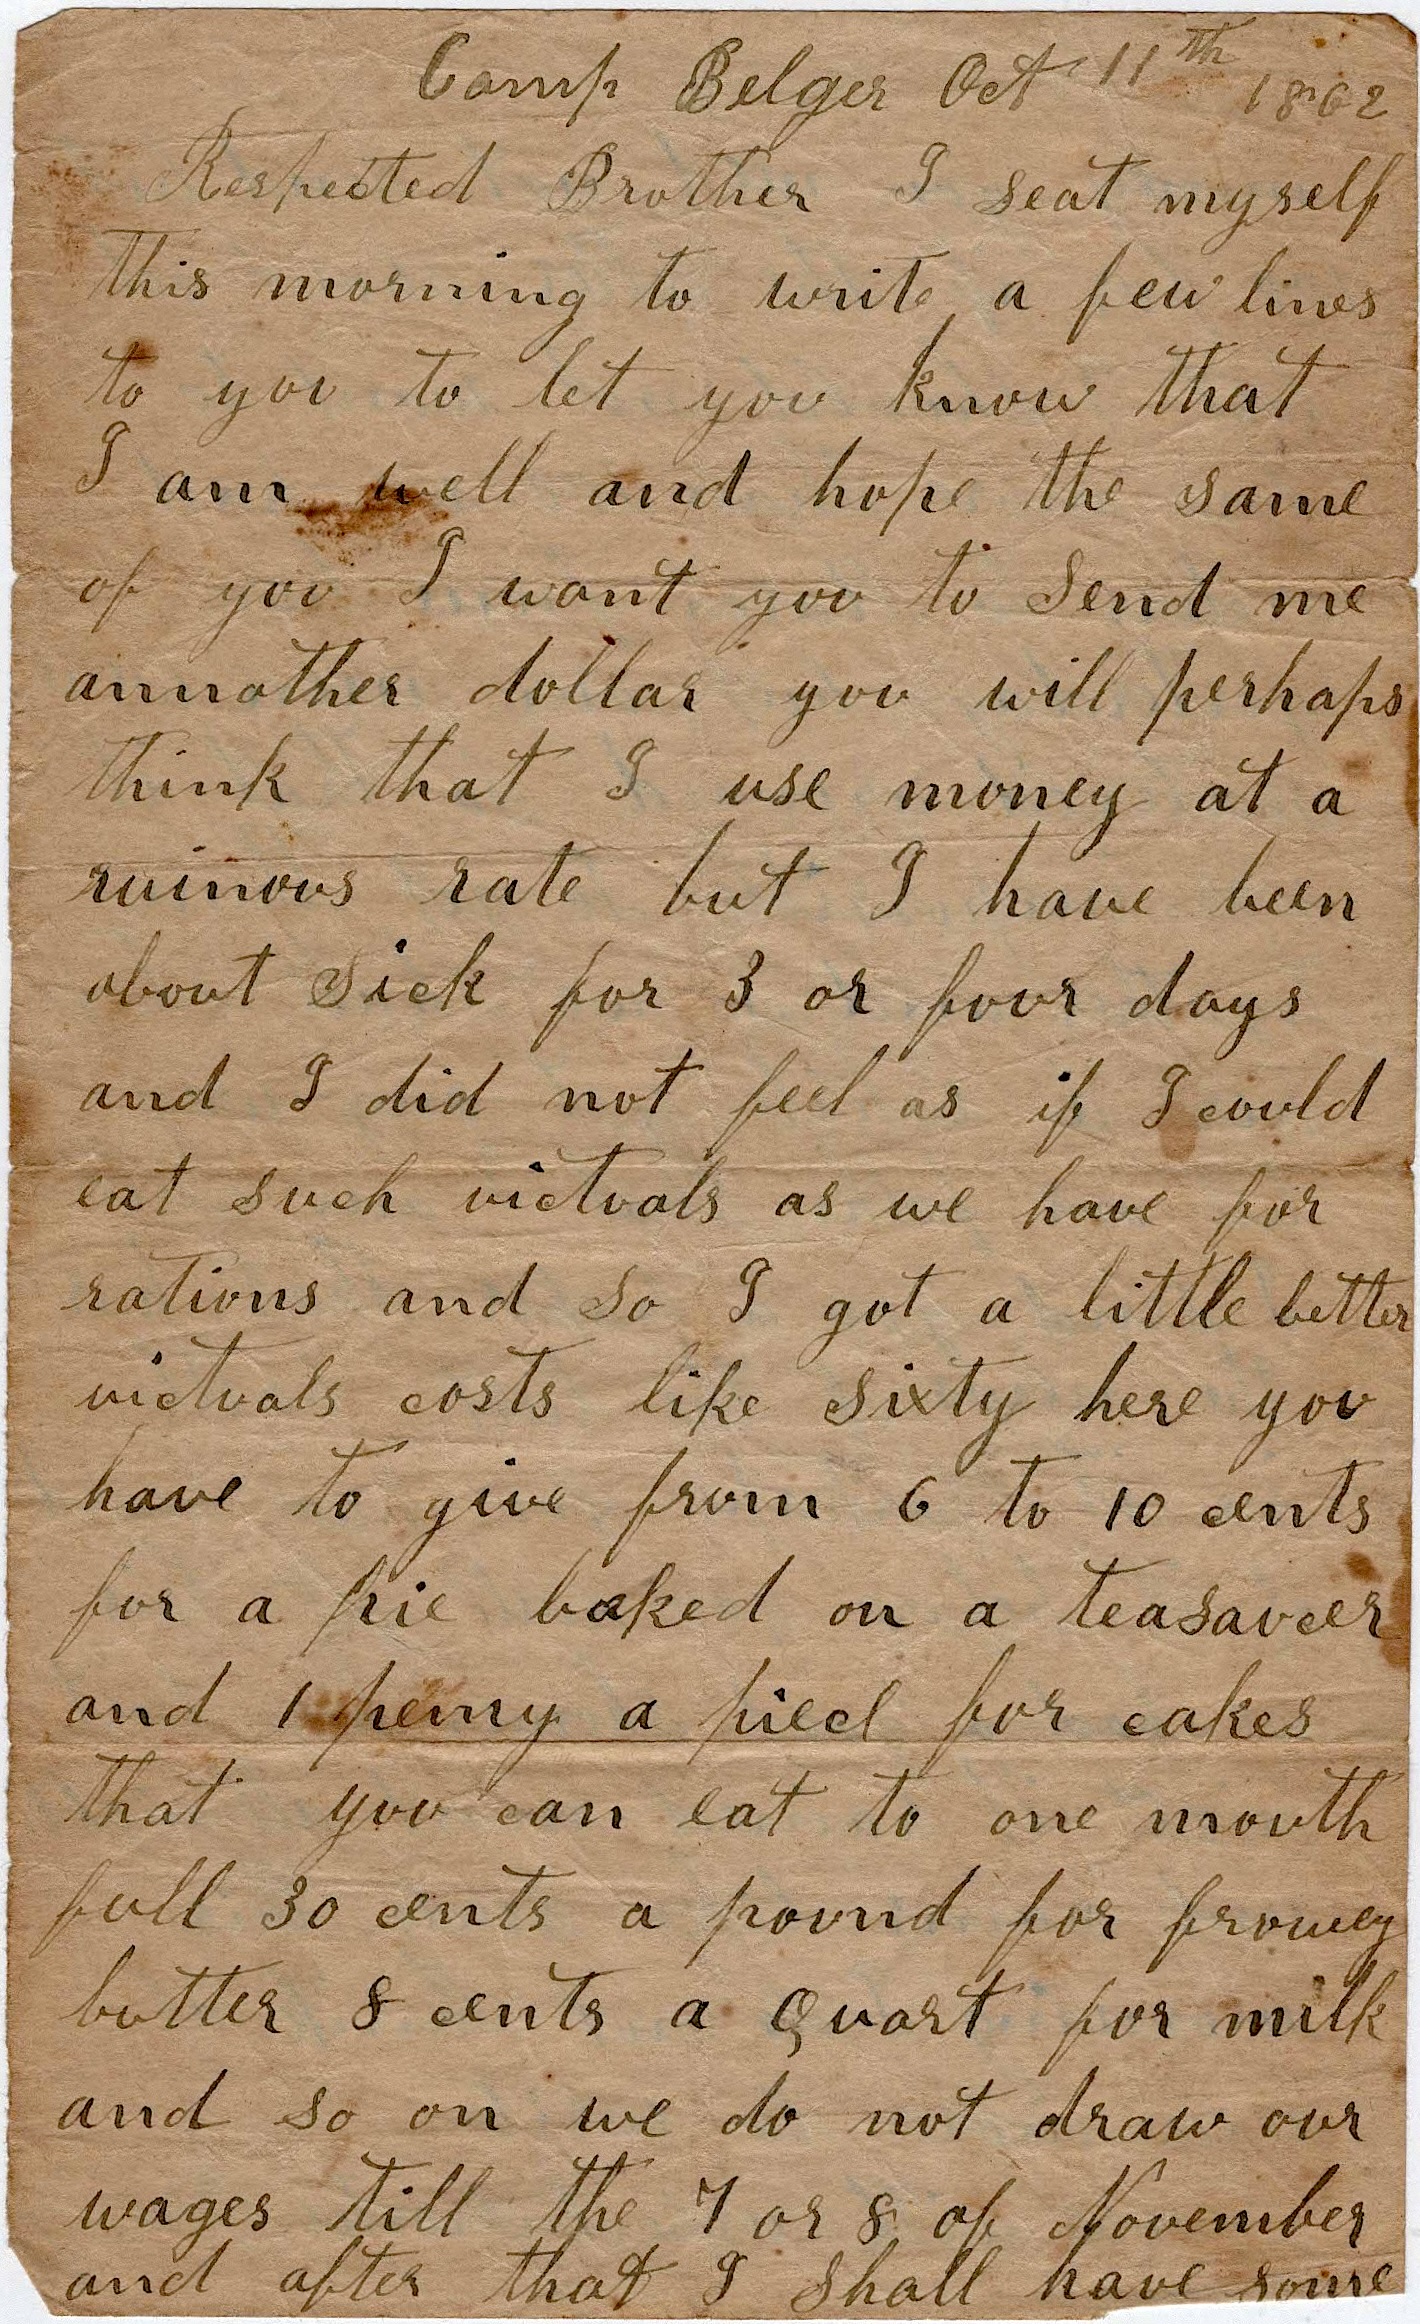 Camp Belger Oct 11th 1862
Respected Brother I seat myself
this morning to write a few lines
to you to let you know that
I am well and hope the same
of you I want you to send me
annother dollar you will perhaps
think that I use money at a
ruinous rate but I have been
about sick for 3 or four days
and I did not feel as if I could
eat such victuals as we have for
rations and so I got a little better
victuals costs like sixty here you
have to give from 6 to 10 cents
for a pie baked on a teasaucer
and 1 penny a piece for cakes
that you can eat to one mouth
full 30 cents a pound for frowey
butter 8 cents a Quart for milk
and so on we do not draw our
wages till the 7 or 8 of November
and after that I shall have some